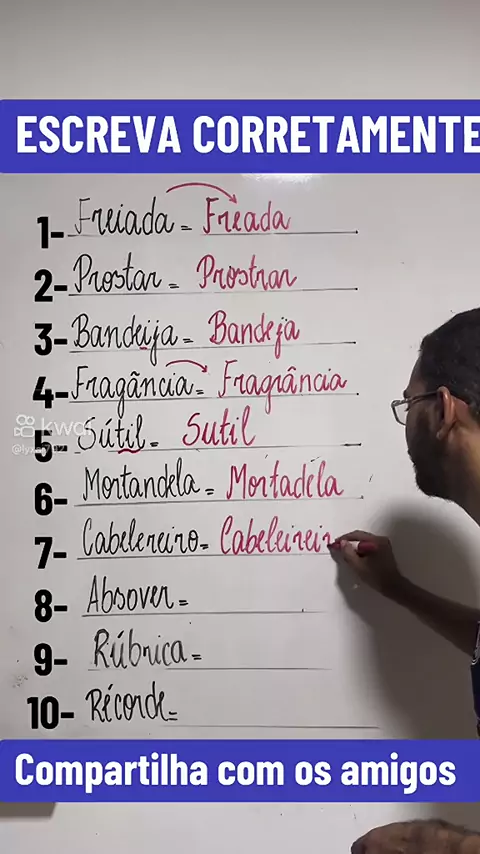 ESCREVA CORRETAMENTE
1- Freiada = Freada
2- Prostar = Prostrar
3- Bandeija = Bandeja
4- Fragãncia = Fragrância
kwai
5- Sútil = Sutil
6- Mortandela = Mortadela
7- Cabelereiro = Cabeleireir
8- Absover =
9- Rúbrica =
10- Récorde =
Compartilha com os amigos